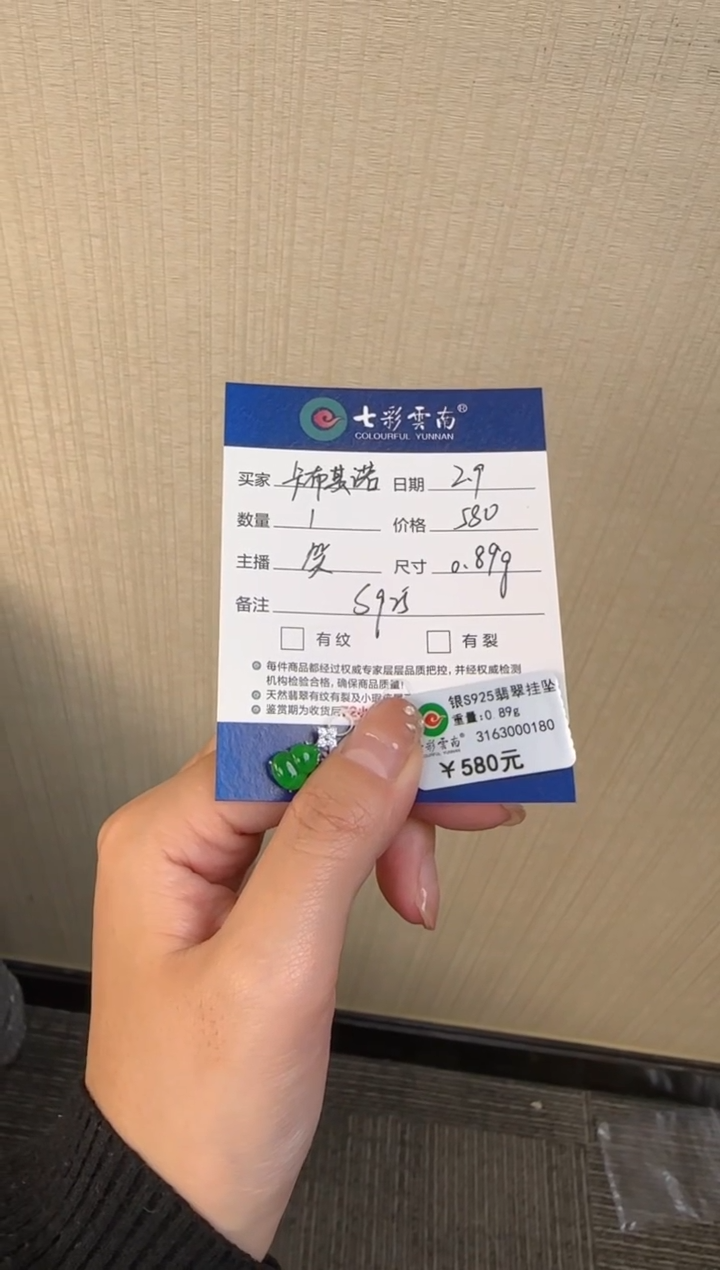 七彩雲南®
COLOURFUL YUNNAN
买家 卡布其诺 日期 2.9
数量 1 价格 580
主播 笑 尺寸 0.89g
备注 S925
有纹 有裂
每件商品都经过权威专家层层品质把控,并经权威检测
机构检验合格,确保商品质量!
天然翡翠有纹有裂及小瑕
鉴赏期为收货后
银S925翡翠挂坠
重量:0 89g
彩雲南® 3163000180
¥580元